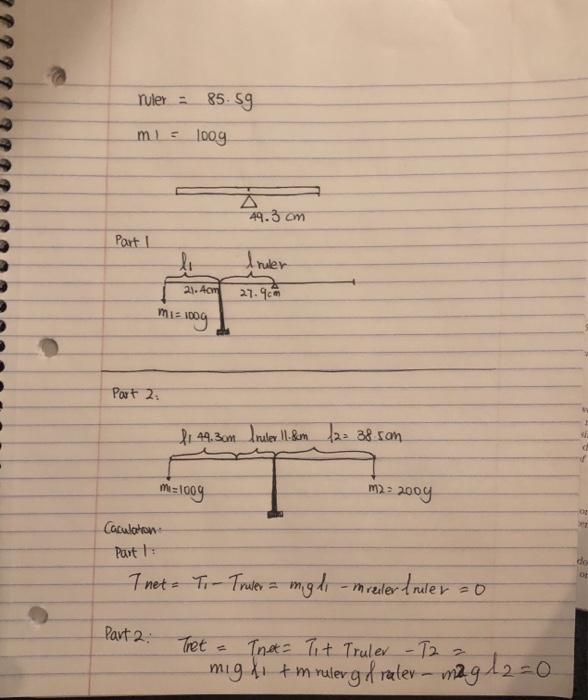 ruler = 85.5g
m1 = 100g
49.3 cm
Part 1
l1 lruler
21.4cm 27.9cm
m1=100g
Part 2:
l1 49.3cm lruler 11.8cm l2= 38.5cm
m1=100g m2=200g
Caculation:
Part 1:
Tnet = T1 - Truler = m1gl1 - mrulerlruler = 0
Part 2: Tnet = Tnet = T1 + Truler - T2 =
m1gl1 + mrulerglruler - m2gl2=0